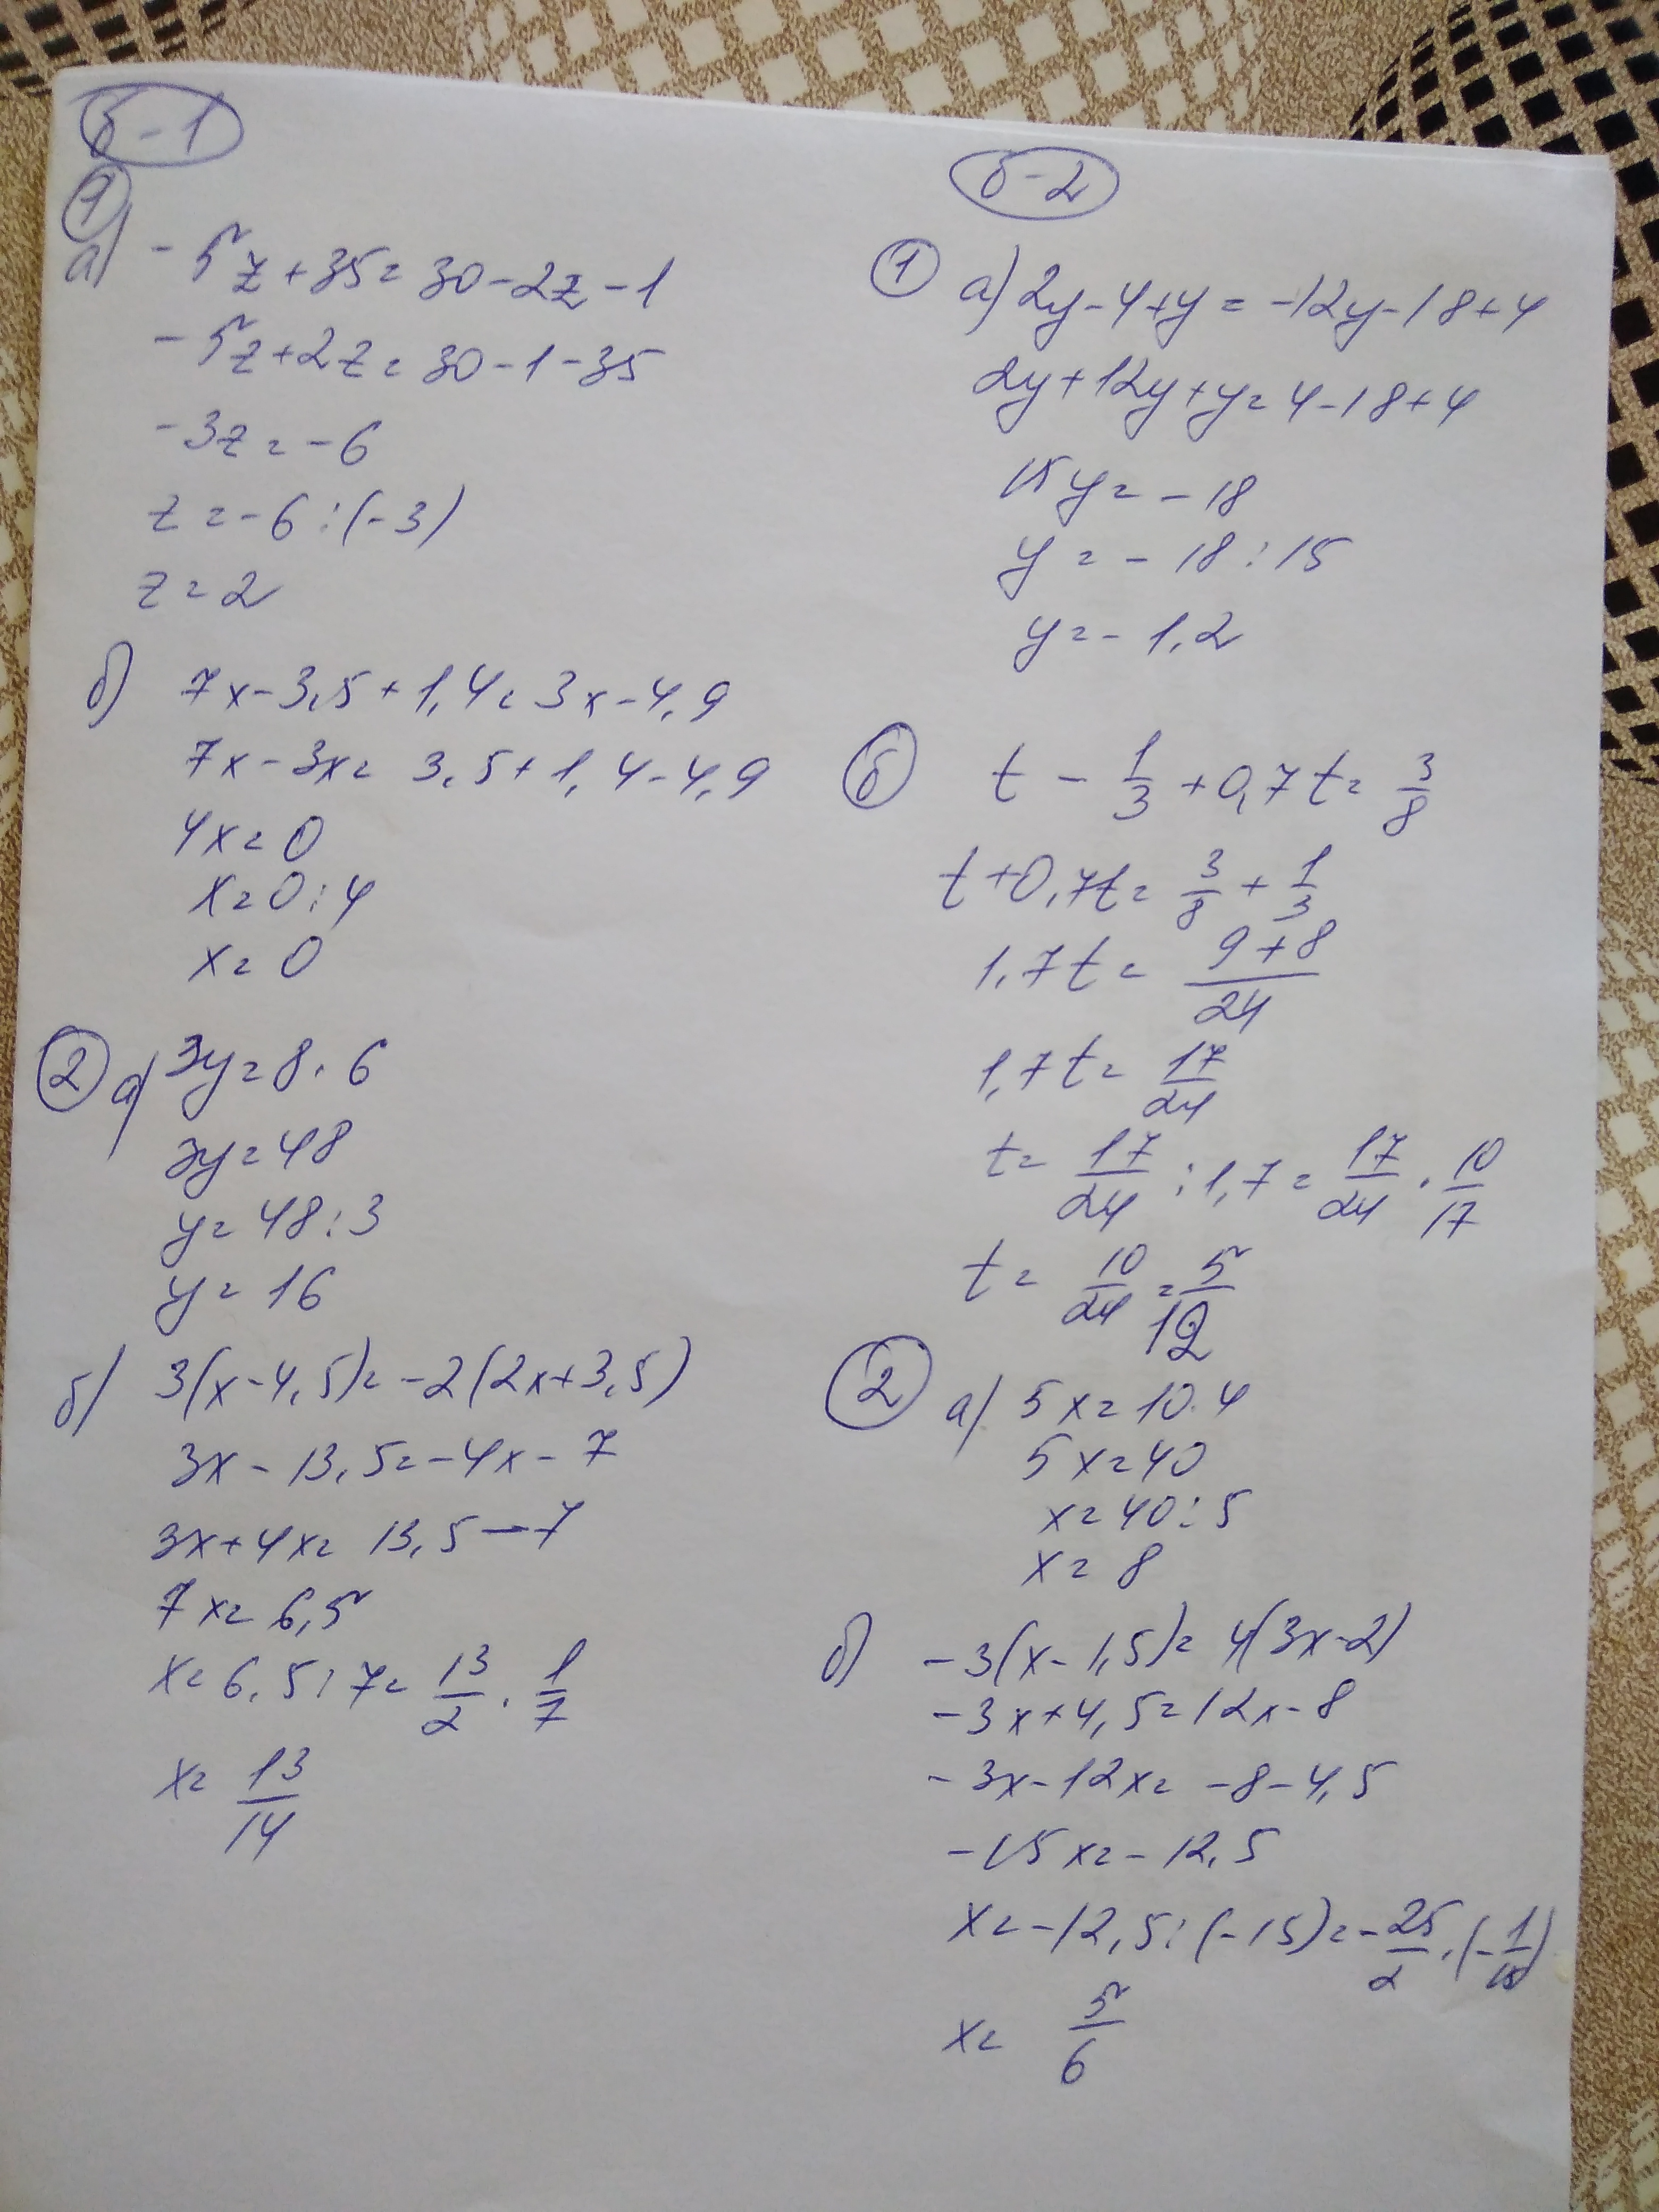 Б-1
1
а) -5z+35=30-2z-1
-5z+2z=30-1-35
-3z=-6
z=-6:(-3)
z=2
б) 7x-3,5+1,4=3x-4,9
7x-3x=3,5+1,4-4,9
4x=0
x=0:4
x=0
2 а) 3y=8·6
3y=48
y=48:3
y=16
б) 3(x-4,5)=-2(2x+3,5)
3x-13,5=-4x-7
3x+4x=13,5-7
7x=6,5
x=6,5:7=13/2·1/7
x=13/14
Б-2
1 а) 2y-4+y=-12y-18+4
2y+12y+y=4-18+4
15y=-18
y=-18:15
y=-1,2
б t-1/3+0,7t=3/8
t+0,7t=3/8+1/3
1,7t=9+8/24
1,7t=17/24
t=17/24:1,7=17/24·10/17
t=10/24=5/12
2 а) 5x=10·4
5x=40
x=40:5
x=8
б) -3(x-1,5)=4(3x-2)
-3x+4,5=12x-8
-3x-12x=-8-4,5
-15x=-12,5
x=-12,5:(-15)=-25/2·(-1/15)
x=5/6